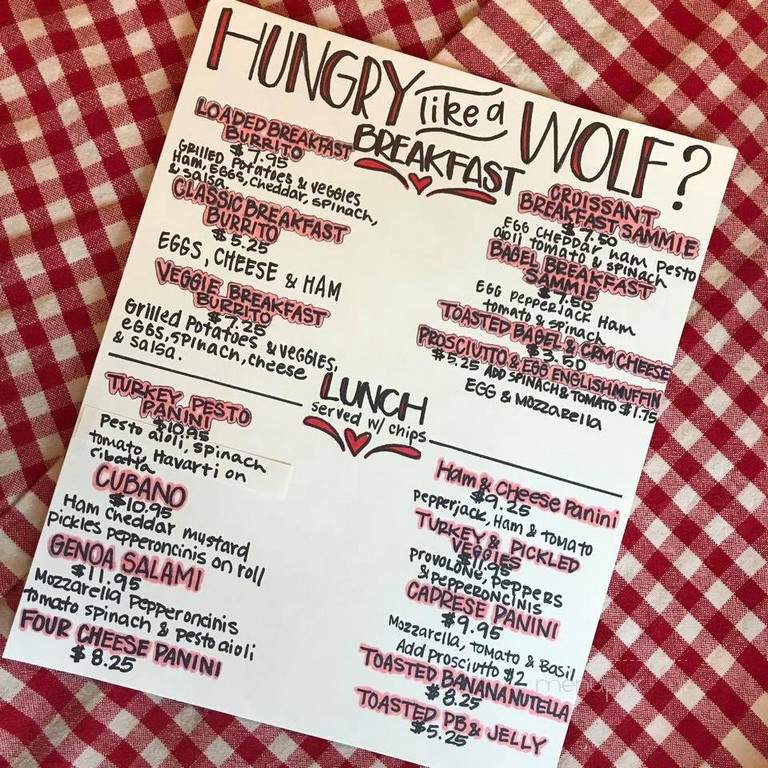 HUNGRY like a WOLF?
BREAKFAST
LOADED BREAKFAST
BURRITO
$7.95
Grilled Potatoes & veggies
Ham, EGGS, cheddar, spinach,
& salsa.
CLASSIC BREAKFAST
BURRITO
$5.25
EGGS, CHEESE & HAM
VEGGIE BREAKFAST
BURRITO
$7.25
Grilled Potatoes & veggies,
eggs, spinach, cheese
& salsa.
CROISSANT
BREAKFAST SAMMIE
$7.50
EGG CHEDDAR ham pesto
aioli tomato & spinach
BAGEL BREAKFAST
SAMMIE
$7.50
EGG PEPPERJACK HAM
tomato & spinach
TOASTED BAGEL & CRM CHEESE
$3.50
PROSCIUTTO & EGG ENGLISH MUFFIN
$5.25 ADD SPINACH & TOMATO $1.75
EGG & MOZZARELLA
LUNCH
served w/ chips
TURKEY PESTO
PANINI
$10.95
Pesto aioli, spinach
tomato, Havarti on
cibatta
CUBANO
$10.95
Ham cheddar mustard
Pickles pepperoncinis on roll
GENOA SALAMI
$11.95
Mozzarella Pepperoncinis
tomato spinach & pesto aioli
FOUR CHEESE PANINI
$8.25
Ham & Cheese Panini
$9.25
Pepperjack, Ham & tomato
TURKEY & PICKLED
VEGGIES
$11.95
PROVOLONE, PEPPERS
& PEPPERONCINIS
CAPRESE PANINI
$9.95
Mozzarella, tomato & Basil
Add Prosciutto $2
TOASTED BANANA NUTELLA
$8.25
TOASTED PB & JELLY
$5.25